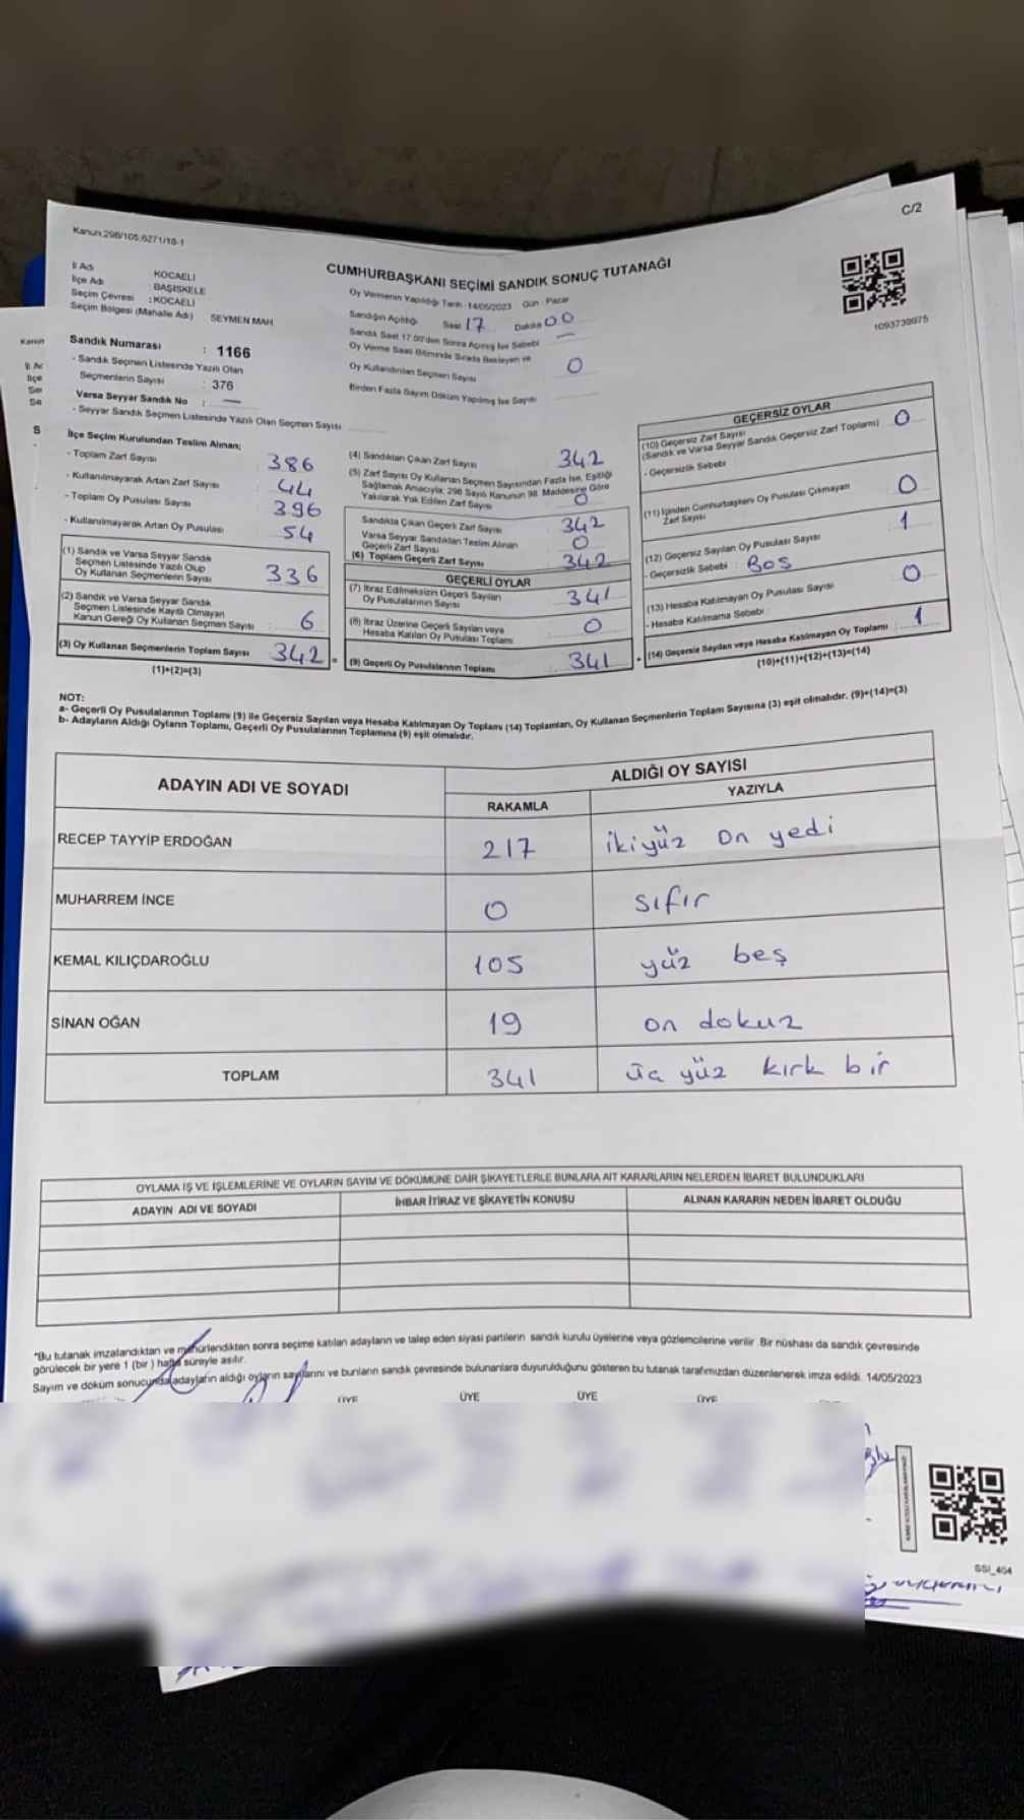 C/2
Kanun 298/105;6271/18-1
CUMHURBAŞKANI SEÇİMİ SANDIK SONUÇ TUTANAĞI
İl Adı KOCAELİ
İlçe Adı BAŞİSKELE
Seçim Çevresi : KOCAELİ
Seçim Bölgesi (Mahalle Adı) SEYMEN MAH
Sandık Numarası : 1166
- Sandık Seçmen Listesinde Yazılı Olan
Seçmenlerin Sayısı : 376
Varsa Seyyar Sandık No : —
- Seyyar Sandık Seçmen Listesinde Yazılı Olan Seçmen Sayısı
Oy Vermenin Yapıldığı Tarih : 14/05/2023 Gün : Pazar
Sandığın Açılışı Saat 17 Dakika 00
Sandık Saat 17.00'den Sonra Açılmış İse Sebebi —
Oy Verme Saati Bitiminde Sırada Bekleyen ve
Oy Kullandırılan Seçmen Sayısı 0
Birden Fazla Sayım Döküm Yapılmış İse Sayısı
1093739975
İlçe Seçim Kurulundan Teslim Alınan;
- Toplam Zarf Sayısı 386
- Kullanılmayarak Artan Zarf Sayısı 44
- Toplam Oy Pusulası Sayısı 396
- Kullanılmayarak Artan Oy Pusulası 54
(1) Sandık ve Varsa Seyyar Sandık
Seçmen Listesinde Yazılı Olup
Oy Kullanan Seçmenlerin Sayısı 336
(2) Sandık ve Varsa Seyyar Sandık
Seçmen Listesinde Kayıtlı Olmayan
Kanun Gereği Oy Kullanan Seçmen Sayısı 6
(3) Oy Kullanan Seçmenlerin Toplam Sayısı 342
(1)+(2)=(3)
(4) Sandıktan Çıkan Zarf Sayısı 342
(5) Zarf Sayısı Oy Kullanan Seçmen Sayısından Fazla İse, Eşitliği
Sağlamak Amacıyla; 298 Sayılı Kanunun 98. Maddesine Göre
Yakılarak Yok Edilen Zarf Sayısı 0
Sandıkta Çıkan Geçerli Zarf Sayısı 342
Varsa Seyyar Sandıktan Teslim Alınan
Geçerli Zarf Sayısı 0
(6) Toplam Geçerli Zarf Sayısı 342
GEÇERLİ OYLAR
(7) İtiraz Edilmeksizin Geçerli Sayılan
Oy Pusulalarının Sayısı 341
(8) İtiraz Üzerine Geçerli Sayılan veya
Hesaba Katılan Oy Pusulası Toplamı 0
(9) Geçerli Oy Pusulalarının Toplamı 341
GEÇERSİZ OYLAR
(10) Geçersiz Zarf Sayısı
(Sandık ve Varsa Seyyar Sandık Geçersiz Zarf Toplamı) 0
- Geçersizlik Sebebi
(11) İçinden Cumhurbaşkanı Oy Pusulası Çıkmayan
Zarf Sayısı 0
(12) Geçersiz Sayılan Oy Pusulası Sayısı 1
- Geçersizlik Sebebi : BOŞ
(13) Hesaba Katılmayan Oy Pusulası Sayısı 0
- Hesaba Katılmama Sebebi
(14) Geçersiz Sayılan veya Hesaba Katılmayan Oy Toplamı 1
(10)+(11)+(12)+(13)=(14)
NOT:
a- Geçerli Oy Pusulalarının Toplamı (9) ile Geçersiz Sayılan veya Hesaba Katılmayan Oy Toplamı (14) Toplamları, Oy Kullanan Seçmenlerin Toplam Sayısına (3) eşit olmalıdır. (9)+(14)=(3)
b- Adayların Aldığı Oyların Toplamı, Geçerli Oy Pusulalarının Toplamına (9) eşit olmalıdır.
ADAYIN ADI VE SOYADI ALDIĞI OY SAYISI
RAKAMLA YAZIYLA
RECEP TAYYİP ERDOĞAN 217 ikiyüz on yedi
MUHARREM İNCE 0 sıfır
KEMAL KILIÇDAROĞLU 105 yüz beş
SİNAN OĞAN 19 on dokuz
TOPLAM 341 üç yüz kırk bir
OYLAMA İŞ VE İŞLEMLERİNE VE OYLARIN SAYIM VE DÖKÜMÜNE DAİR ŞİKAYETLERLE BUNLARA AİT KARARLARIN NELERDEN İBARET BULUNDUKLARI
ADAYIN ADI VE SOYADI İHBAR İTİRAZ VE ŞİKAYETİN KONUSU ALINAN KARARIN NEDEN İBARET OLDUĞU
"Bu tutanak imzalandıktan ve mühürlendikten sonra seçime katılan adayların ve talep eden siyasi partilerin sandık kurulu üyelerine veya gözlemcilerine verilir. Bir nüshası da sandık çevresinde
görülecek bir yere 1 (bir) hafta süreyle asılır.
Sayım ve döküm sonucunda adayların aldığı oyların sayılarını ve bunların sandık çevresinde bulunanlara duyurulduğunu gösteren bu tutanak tarafımızdan düzenlenerek imza edildi. 14/05/2023
ÜYE ÜYE ÜYE ÜYE
SSI_404